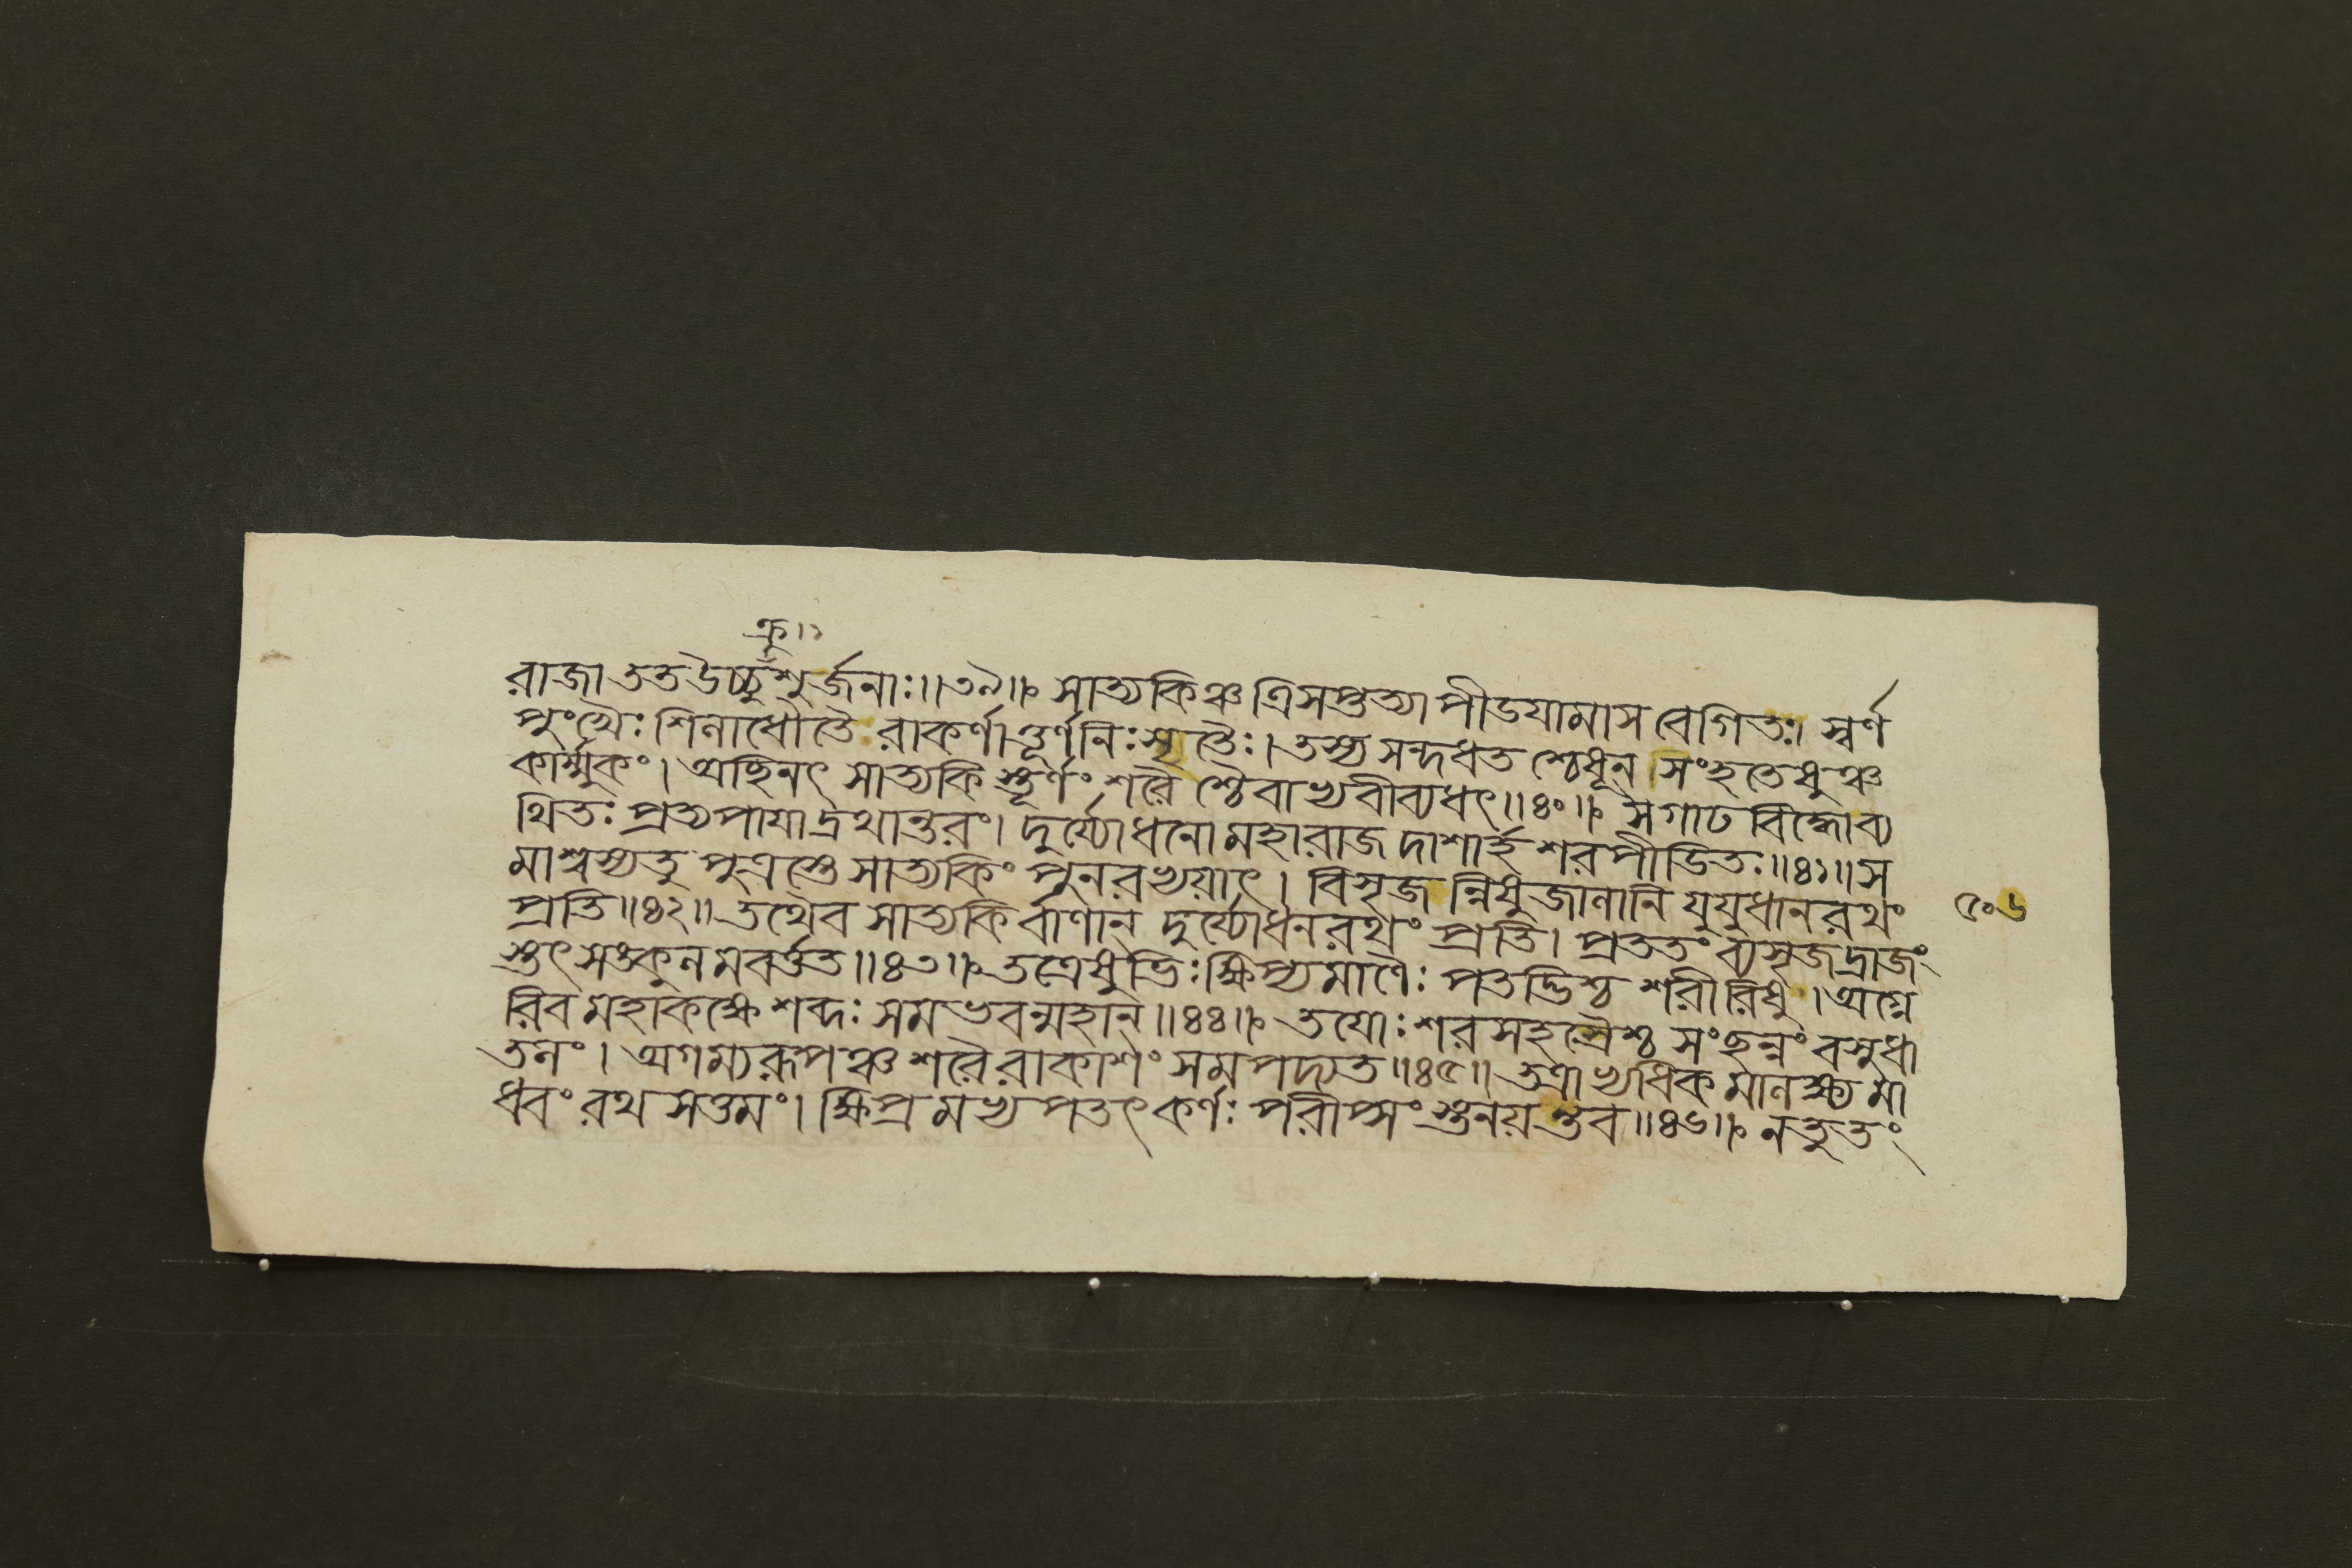 ক্রু।১
রাজা ততউচ্চুক্রুশুর্জনাঃ॥৩৯॥ সাত্যকিঞ্চ ত্রিসপ্তত্যা পীডযামাস বেগিতঃ। স্বর্ণ
পুংখৈঃ শিলাধৌতৈ রাকর্ণাৎতূর্ণনিঃসৃতৈঃ। তস্য সন্দধত শ্চেষূন্ সংহতেষুঞ্চ
কার্ম্মুকং। অছিনৎ সাত্যকি স্তূর্ণং শরৈ শ্চৈবাভ্যবীবৃধৎ॥৪০॥ সগাঢ বিদ্ধোব্য
থিতঃ প্রত্যপাযাদ্রথান্তরং। দুর্য্যোধনো মহারাজ দাশার্হ শরপীডিতঃ॥৪১॥ স
মাশ্বস্যতু পুত্রস্তে সাত্যকিং পুনরভ্যয়াৎ। বিসৃজ ন্নিষুজালানি যুযুধানরথং
প্রতি॥৪২॥ তথৈব সাত্যকি র্বাণান্ দুর্য্যোধনরথং প্রতি। প্রততং ব্যসৃজদ্রাজং
স্তৎ সঙ্কুলমবর্ত্তত॥৪৩॥ তত্রেষুভিঃ ক্ষিপ্যমাণৈঃ পতদ্ভিশ্চ শরীরিষু। অগ্নে
রিব মহাকক্ষে শব্দঃ সমভবন্মহান্॥৪৪॥ তযোঃ শরসহস্রৈশ্চ সংছন্নং বসুধা
তলং। অগম্যরূপঞ্চ শরৈরাকাশং সমপদ্যত॥৪৫॥ তত্রাভ্যধিকমালক্ষ্য মা
ধবং রথসত্তমং। ক্ষিপ্রমভ্যপতৎ কর্ণঃ পরীপ্সংস্তনয়ন্তব॥৪৬॥ নতুতং
৫০৬